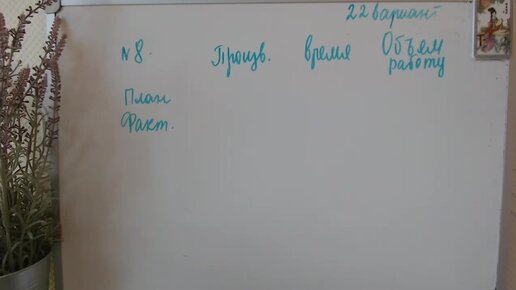 22 вариант
№8. Произв. время Объем
работу
План
Факт.